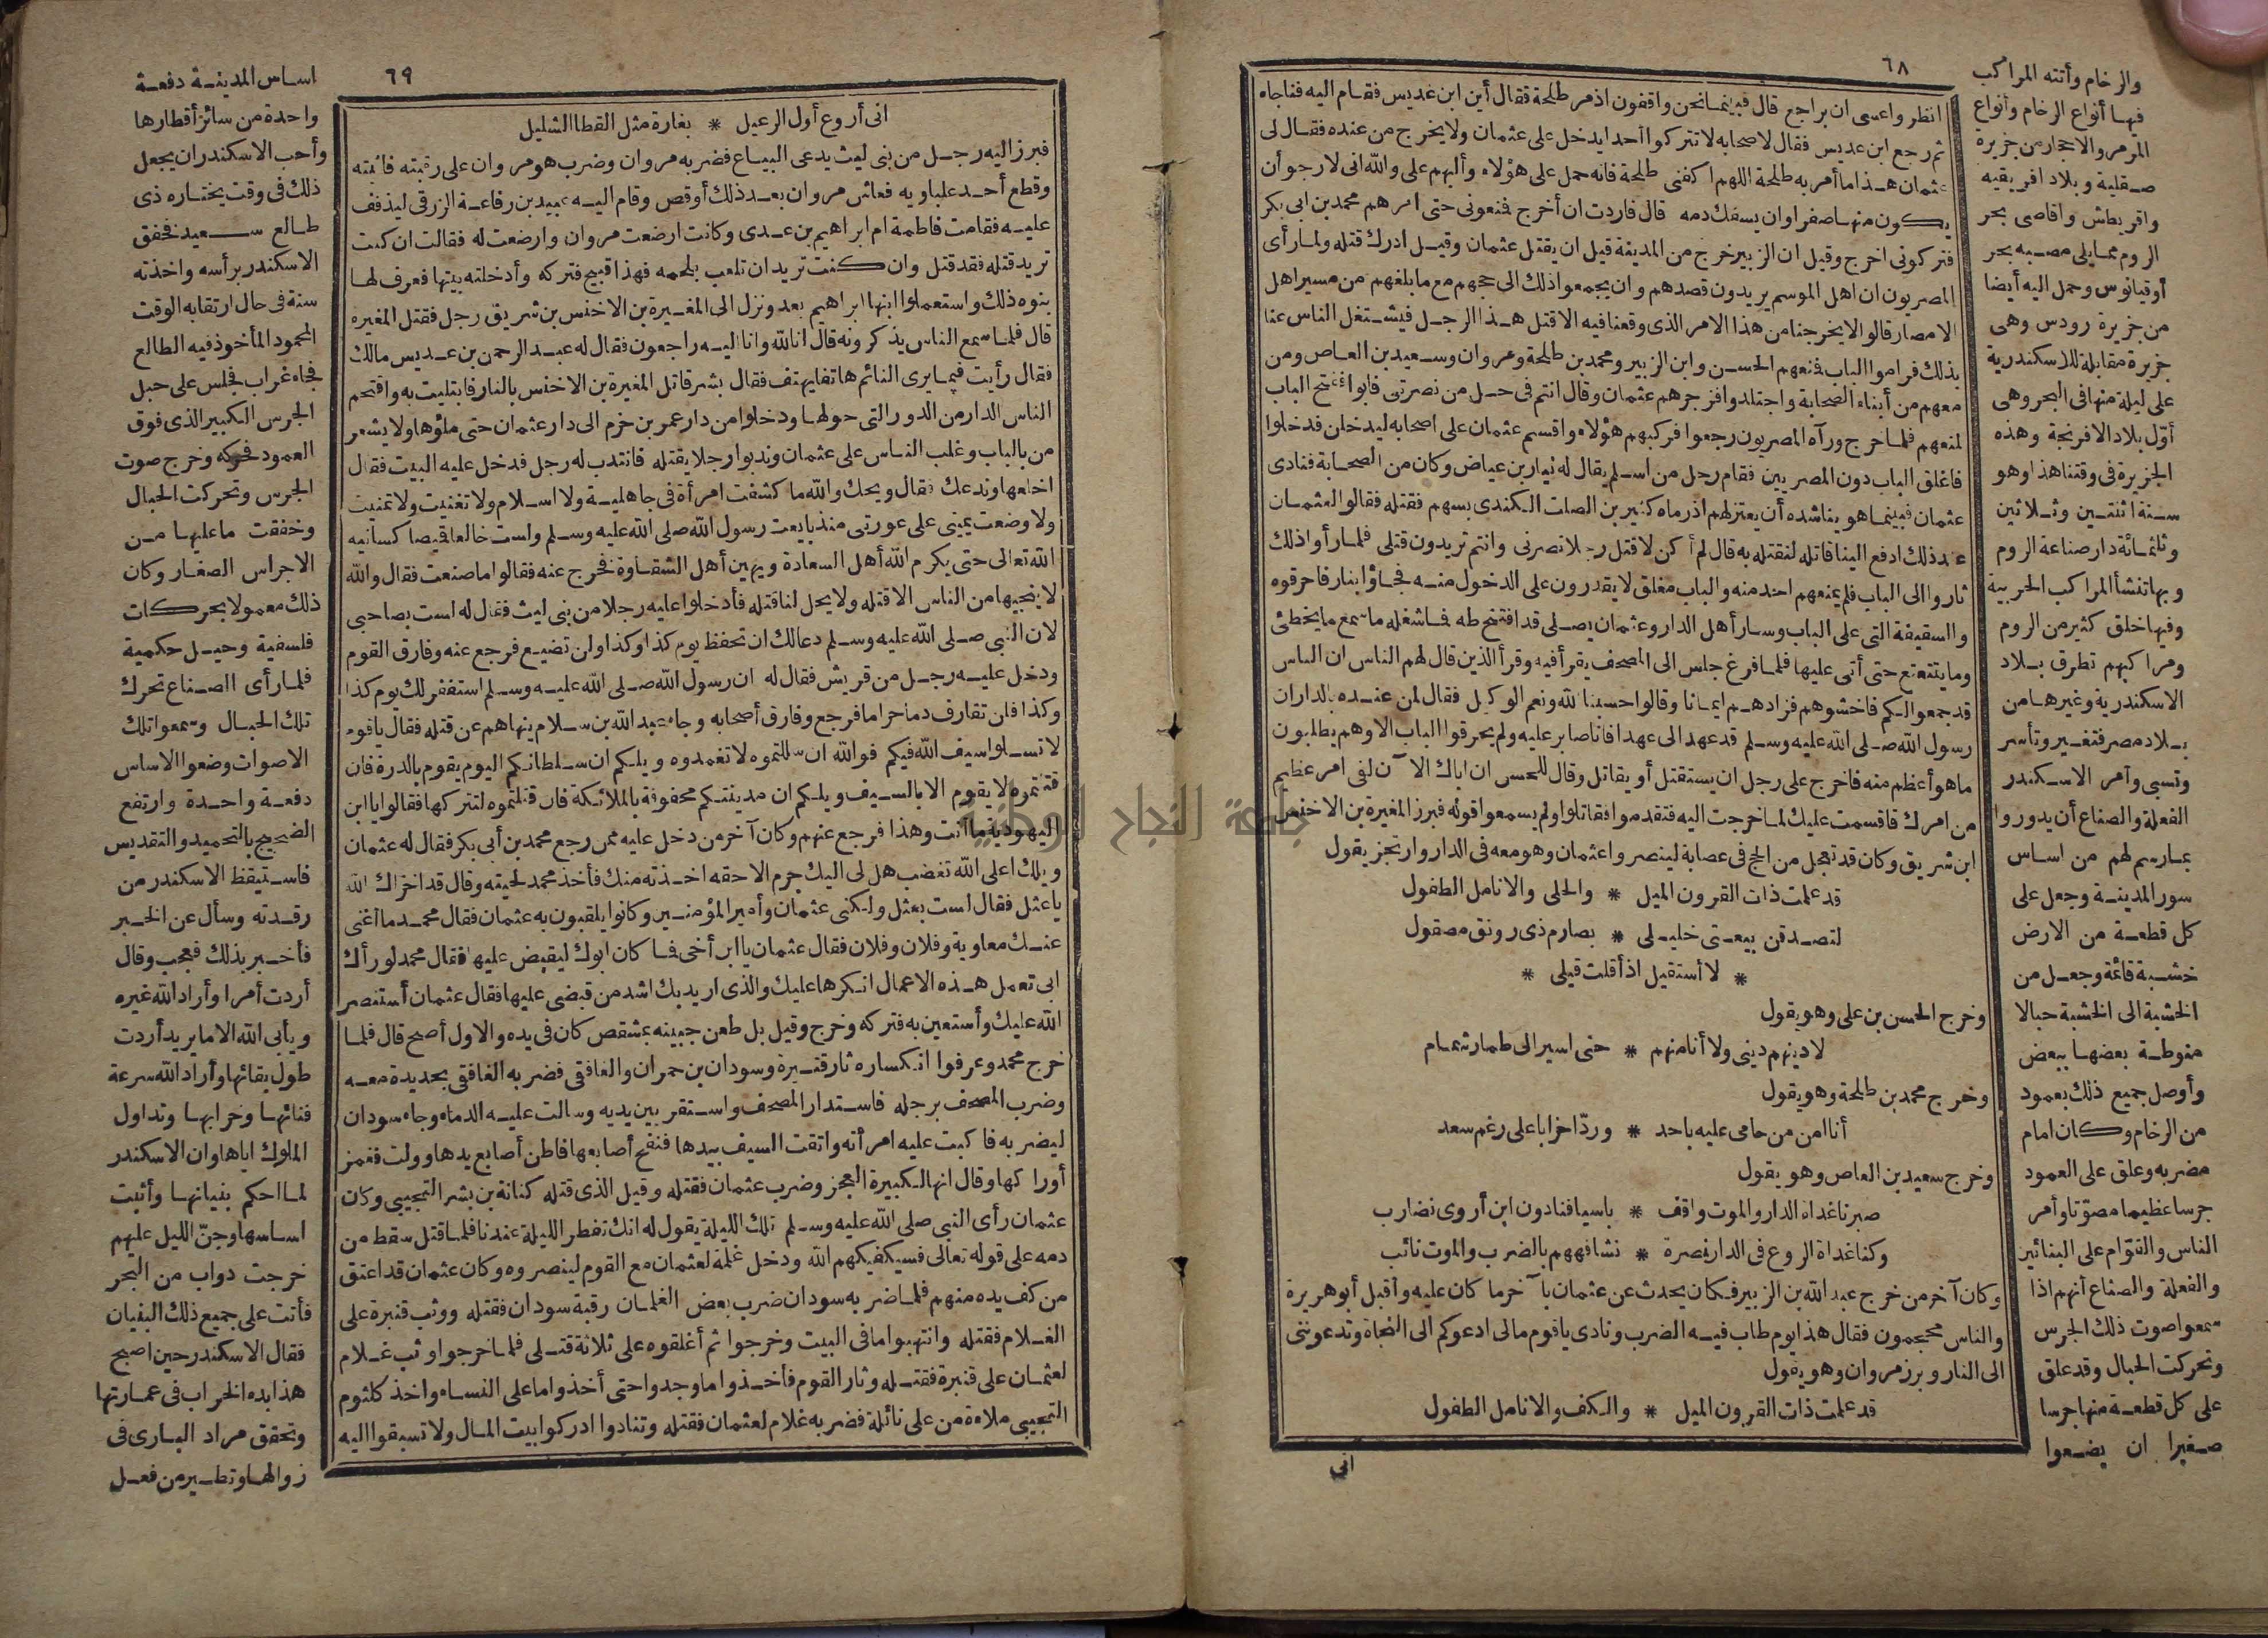 ٦٨
انظروا عسى ان يراجع قال فبينما نحن واقفون اذ مر طلحة فقال أين ابن عديس فقام اليه فناجاه
ثم رجع ابن عديس فقال لاصحابه لا تتركوا أحدا يدخل على عثمان ولا يخرج من عنده فقال لى
عثمان هذا ما أمر به طلحة اللهم اكفنى طلحة فانه حمل على هؤلاء وألبهم على والله انى لارجو أن
يكون منها صفرا وان يسفك دمه قال فاردت ان أخرج فمنعونى حتى امرهم محمد بن ابى بكر
فتركونى اخرج وقيل ان الزبير خرج من المدينة قبل ان يقتل عثمان وقيل ادرك قتله ولما رأى
المصريون ان اهل الموسم يريدون قصدهم وان يجمعوا ذلك الى حجهم مع ما بلغهم من مسير اهل
الامصار قالوا لا يخرجنا من هذا الامر الذى وقعنا فيه الا قتل هذا الرجل فيشتغل الناس عنا
بذلك فراموا الباب فمنعهم الحسن وابن الزبير ومحمد بن طلحة ومروان وسعيد بن العاص ومن
معهم من أبناء الصحابة واجتلدوا فزجرهم عثمان وقال انتم فى حل من نصرتى فابوا ففتح الباب
لمنعهم فلما خرج ورآه المصريون رجعوا فركبهم هؤلاء واقسم عثمان على اصحابه ليدخلن فدخلوا
فاغلق الباب دون المصريين فقام رجل من اسلم يقال له نيار بن عياض وكان من الصحابة فنادى
عثمان فبينما هو يناشده أن يعتزلهم اذ رماه كثير بن الصلت الكندى بسهم فقتله فقالوا لعثمان
عند ذلك ادفع الينا قاتله لنقتله به قال لم أكن لاقتل رجلا نصرنى وانتم تريدون قتلى فلما رأوا ذلك
ثاروا الى الباب فلم يمنعهم احد منه والباب مغلق لا يقدرون على الدخول منه فجاؤا بنار فاحرقوه
والسقيفة التى على الباب وسار أهل الدار وعثمان يصلى قد افتتح طه فما شغله ما سمع ما يخطئ
وما يتتعتع حتى أتى عليها فلما فرغ جلس الى المصحف يقرأ فيه وقرأ الذين قال لهم الناس ان الناس
قد جمعوا لكم فاخشوهم فزادهم ايمانا وقالوا حسبنا الله ونعم الوكيل فقال لمن عنده بالدار ان
رسول الله صلى الله عليه وسلم قد عهد الى عهدا فانا صابر عليه ولم يحرقوا الباب الا وهم يطلبون
ما هو أعظم منه فاخرج على رجل ان يستقتل أو يقاتل وقال للحسن ان اباك الآن لفى امر عظيم
من امرك فاقسمت عليك لما خرجت اليه فتقدموا فقاتلوا ولم يسمعوا قوله فبرز المغيرة بن الاخنس
ابن شريق وكان قد تعجل من الحج فى عصابة لينصروا عثمان وهو معه فى الدار وارتجز يقول
قد علمت ذات القرون الميل * والحلى والانامل الطفول
لتصدقن بيعتى خليلى * بصارم ذى رونق مصقول
* لا أستقيل اذ أقلت قيلى *
وخرج الحسن بن على وهو يقول
لا دينهم دينى ولا أنا منهم * حتى اسير الى طمار شمام
وخرج محمد بن طلحة وهو يقول
أنا ابن من حامى عليه باحد * وردّ احزابا على رغم سعد
وخرج سعيد بن العاص وهو يقول
صبرنا غداة الدار والموت واقف * باسيافنا دون ابن أروى نضارب
وكنا غداة الروع فى الدار نصرة * نشافههم بالضرب والموت نائب
وكان آخر من خرج عبد الله بن الزبير فكان يحدث عن عثمان بآخر ما كان عليه وأقبل أبو هريرة
والناس محجمون فقال هذا يوم طاب فيه الضرب ونادى يا قوم مالى ادعوكم الى النجاة وتدعوننى
الى النار وبرز مروان وهو يقول
قد علمت ذات القرون الميل * والكف والانامل الطفول
انى
والرخام وأتته المراكب
فيها أنواع الرخام وأنواع
المرمر والاحجار من جزيرة
صقلية وبلاد افريقيه
واقريطش واقاصى بحر
الروم مما يلى مصبه بحر
أوقيانوس وحمل اليه أيضا
من جزيرة رودس وهى
جزيرة مقابلة للاسكندرية
على ليلة منها فى البحر وهى
أوّل بلاد الافرنجة وهذه
الجزيرة فى وقتنا هذا وهو
سنة اثنتين وثلاثين
وثلثمائة دار صناعة الروم
وبها تنشأ المراكب الحربية
وفيها خلق كثير من الروم
ومراكبهم تطرق بلاد
الاسكندرية وغيرها من
بلاد مصر فتغير وتأسر
وتسبى وأمر الاسكندر
الفعلة والصناع أن يدوروا
بما رسم لهم من اساس
سور المدينة وجعل على
كل قطعة من الارض
خشبة قائمة وجعل من
الخشبة الى الخشبة حبالا
منوطة بعضها ببعض
وأوصل جميع ذلك بعمود
من الرخام وكان امام
مضربه وعلق على العمود
جرسا عظيما مصوّتا وأمر
الناس والقوّام على البنائين
والفعلة والصناع أنهم اذا
سمعوا صوت ذلك الجرس
وتحركت الحبال وقد علق
على كل قطعة منها جرسا
صغيرا ان يضعوا
٦٩
انى أروع أول الرعيل * بغارة مثل القطا الشليل
فبرز اليه رجل من بنى ليث يدعى البياع فضربه مروان وضرب هو مروان على رقبته فاثبته
وقطع أحد علباويه فعاش مروان بعد ذلك أوقص وقام اليه عبيد بن رفاعة الزرقى ليذفف
عليه فقامت فاطمة ام ابراهيم بن عدى وكانت ارضعت مروان وارضعت له فقالت ان كنت
تريد قتله فقد قتل وان كنت تريد ان تلعب بلحمه فهذا قبيح فتركه وأدخلته بيتها فعرف لها
بنوه ذلك واستعملوا ابنها ابراهيم بعد ونزل الى المغيرة بن الاخنس بن شريق رجل فقتل المغيره
قال فلما سمع الناس يذكرونه قال انا لله وانا اليه راجعون فقال له عبد الرحمن بن عديس مالك
فقال رأيت فيما يرى النائم هاتفا يهتف فقال بشر قاتل المغيرة بن الاخنس بالنار فابتليت به واقتحم
الناس الدار من الدور التى حولها ودخلوا من دار عمر بن حزم الى دار عثمان حتى ملؤها ولا يشعر
من بالباب وغلب الناس على عثمان وندبوا رجلا يقتله فانتدب له رجل فدخل عليه البيت فقال
اخلعها وندعك فقال ويحك والله ما كشفت امرأة فى جاهلية ولا اسلام ولا تغنيت ولا تمنيت
ولا وضعت يمينى على عورتى منذ بايعت رسول الله صلى الله عليه وسلم ولست خالعا قميصا كسانيه
الله تعالى حتى يكرم الله أهل السعادة ويهين أهل الشقاوة فخرج عنه فقالوا ما صنعت فقال والله
لا ينجيها من الناس الا قتله ولا يحل لنا قتله فأدخلوا عليه رجلا من بنى ليث فقال له لست بصاحبى
لان النبى صلى الله عليه وسلم دعا لك ان تحفظ يوم كذا وكذا ولن تضيع فرجع عنه وفارق القوم
ودخل عليه رجل من قريش فقال له ان رسول الله صلى الله عليه وسلم استغفر لك يوم كذا
وكذا فلن تقارف دما حراما فرجع وفارق أصحابه وجاء عبد الله بن سلام ينهاهم عن قتله فقال يا قوم
لا تسلوا سيف الله فيكم فوالله ان سللتموه لا تغمدوه ويلكم ان سلطانكم اليوم يقوم بالدرة فان
قتلتموه لا يقوم الا بالسيف ويلكم ان مدينتكم محفوفة بالملائكة فان قتلتموه لتتركها فقالوا يا ابن
اليهودية ما أنت وهذا فرجع عنهم وكان آخر من دخل عليه ممن رجع محمد بن أبى بكر فقال له عثمان
ويلك اعلى الله تغضب هل لى اليك جرم الا حقه اخذته منك فأخذ محمد لحيته وقال قد اخزاك الله
يا نعثل فقال لست بنعثل ولكنى عثمان وأمير المؤمنين وكانوا يلقبون به عثمان فقال محمد ما أغنى
عنك معاوية وفلان وفلان فقال عثمان يا ابن أخى فما كان ابوك ليقبض عليها فقال محمد لو رآك
ابى تعمل هذه الاعمال انكرها عليك والذى اريد بك اشد من قبضى عليها فقال عثمان أستنصر
الله عليك وأستعين به فتركه وخرج وقيل بل طعن جبينه بمشقص كان فى يده والاول أصح قال فلما
خرج محمد وعرفوا انكساره ثار قتيرة وسودان بن حمران والغافقى فضربه الغافقى بحديدة معه
وضرب المصحف برجله فاستدار المصحف واستقر بين يديه وسالت عليه الدماء وجاء سودان
ليضربه فاكبت عليه امرأته واتقت السيف بيدها فنفح أصابعها فاطن أصابع يدها وولت فغمز
أوراكها وقال انها لكبيرة العجز وضرب عثمان فقتله وقيل الذى قتله كنانة بن بشر التجيبى وكان
عثمان رأى النبى صلى الله عليه وسلم تلك الليلة يقول له انك تفطر الليلة عندنا فلما قتل سقط من
دمه على قوله تعالى فسيكفيكهم الله ودخل غلمة لعثمان مع القوم لينصروه وكان عثمان قد اعتق
من كف يده منهم فلما ضربه سودان ضرب بعض الغلمان رقبة سودان فقتله ووثب قتيرة على
الغلام فقتله وانتهبوا ما فى البيت وخرجوا ثم أغلقوه على ثلاثة قتلى فلما خرجوا وثب غلام
لعثمان على قتيرة فقتله وثار القوم فأخذوا ما وجدوا حتى أخذوا ما على النساء واخذ كلثوم
التجيبى ملاءة من على نائلة فضربه غلام لعثمان فقتله وتنادوا ادركوا بيت المال ولا تسبقوا اليه
اساس المدينة دفعة
واحدة من سائر أقطارها
وأحب الاسكندر ان يجعل
ذلك فى وقت يختاره ذى
طالع سعيد فخفق
الاسكندر برأسه واخذته
سنة فى حال ارتقابه الوقت
المحمود المأخوذ فيه الطالع
فجاء غراب فجلس على حبل
الجرس الكبير الذى فوق
العمود فحركه وخرج صوت
الجرس وتحركت الحبال
وخفقت ما عليها من
الاجراس الصغار وكان
ذلك معمولا بحركات
فلسفية وحيل حكمية
فلما رأى الصناع تحرك
تلك الحبال وسمعوا تلك
الاصوات وضعوا الاساس
دفعة واحدة وارتفع
الضجيج بالتحميد والتقديس
فاستيقظ الاسكندر من
رقدته وسأل عن الخبر
فأخبر بذلك فعجب وقال
أردت أمرا وأراد الله غيره
ويأبى الله الا ما يريد أردت
طول بقائها وأراد الله سرعة
فنائها وخرابها وتداول
الملوك اياها وان الاسكندر
لما احكم بنيانها وأثبت
اساسها وجنّ الليل عليهم
خرجت دواب من البحر
فأتت على جميع ذلك البنيان
فقال الاسكندر حين اصبح
هذا بدء الخراب فى عمارتها
وتحقق مراد البارى فى
زوالها وتطير من فعل
جامعة النجاح الوطنية